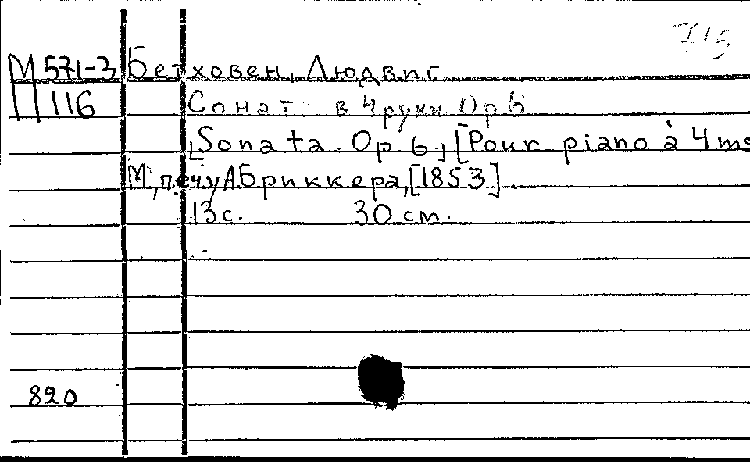 715
М 571-3 Бетховен, Людвиг
П 116 Сонат в 4 руки Op 6
[Sonata. Op. 6.] [Pour piano à 4 ms
М, печ. у А. Бриккера, [1853]
13 с. 30 см.
820